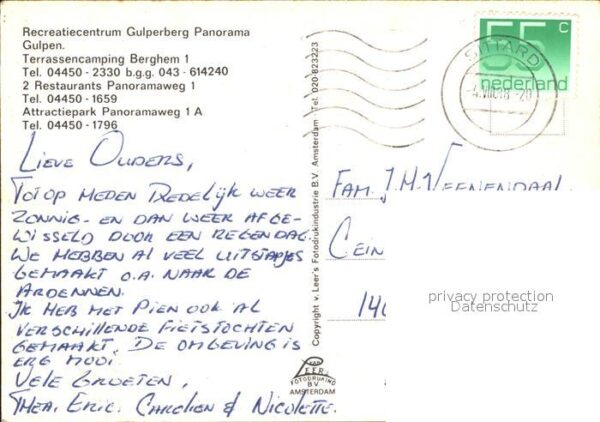 Recreatiecentrum Gulperberg Panorama
Gulpen.
Terrassencamping Berghem 1
Tel. 04450 - 2330 b.g.g. 043 - 614240
2 Restaurants Panoramaweg 1
Tel. 04450 - 1659
Attractiepark Panoramaweg 1 A
Tel. 04450 - 1796
LIEVE OUDERS,
TOT OP HEDEN REDELIJK WEER
ZONNIG - EN DAN WEER AFGE-
WISSELD DOOR EEN REGENDAG.
WE HEBBEN AL VEEL UITSTAPJES
GEMAAKT O.A. NAAR DE
ARDENNEN.
IK HEB MET PIEN OOK AL
VERSCHILLENDE FIETSTOCHTEN
GEMAAKT. DE OMGEVING IS
ERG MOOI.
VELE GROETEN,
THEA, ERIC, CAROLIEN & NICOLETTE.
Copyright v. Leer's Fotodrukindustrie B.V. Amsterdam - Tel. 020-823223
VAN
LEER'S
FOTODRUKIND
B.V.
AMSTERDAM
55 c
nederland
SITTARD
FAM. J.H. VEENENDAAL
CEIN
140
privacy protection
Datenschutz